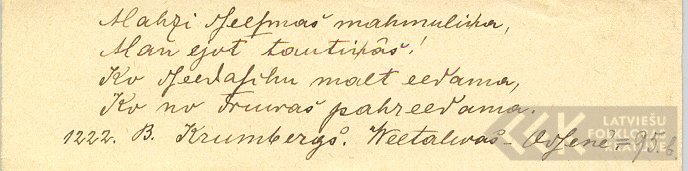 Mahzi dseesmas mahmuliņa,
Man ejot tautiņâs!
Ko dseedasihu malt eedama,
Ko no druwas pahreedama.
1222. B. Krumbergs. Weetalwas - Odsenē.
LATVIEŠU
FOLKLORAS
KRĀTUVE